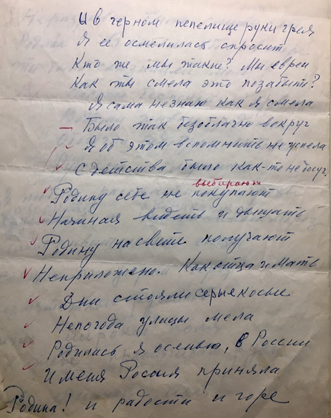 И в чёрном пепелище руки грея
Я её осмелилась спросит
Кто же мы такие? Мы евреи
Как ты смела это позабыть?
Я сама не знаю как я смела
Было так безоблачно вокруг
Я об этом вспомнить не успела
С детства было как-то недосуг,
выбирают
Родину себе не покупают
Начиная видеть и
Родину на свете получают
Непреложено. Как отца и мать
Дни стояли серые косые
Непогода улицы мела
Родилась я осенью, в России
И меня Россия приняла
Родина! и радости и горе